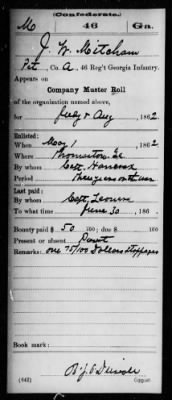 (Confederate.)
M 46 Ga.
J. W. Mitcham
Pvt, Co. A, 46 Reg't Georgia Infantry.
Appears on
Company Muster Roll
of the organization named above,
for July & Aug, 1862
Enlisted:
When May 1, 1862
Where
By whom Capt.
Period
Last paid:
By whom Capt.
To what time June 30, 186
Bounty paid $ 50 100; due $ 100
Present or absent
Remarks: One 75/100 Dollars stoppages
Book mark:
(642) Copyist.